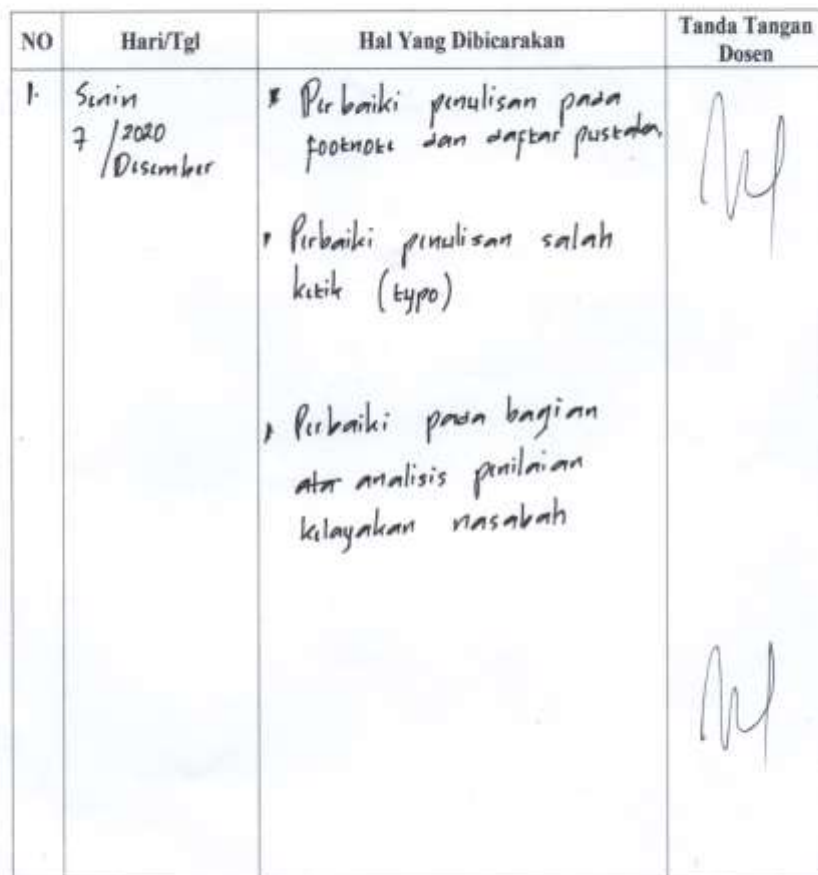 NO Hari/Tgl Hal Yang Dibicarakan Tanda Tangan
Dosen
1. Senin
7 /2020
/Desember
Perbaiki penulisan pada
footnote dan daftar pustaka
Perbaiki penulisan salah
ketik (typo)
Perbaiki pada bagian
analisis penilaian
kelayakan nasabah